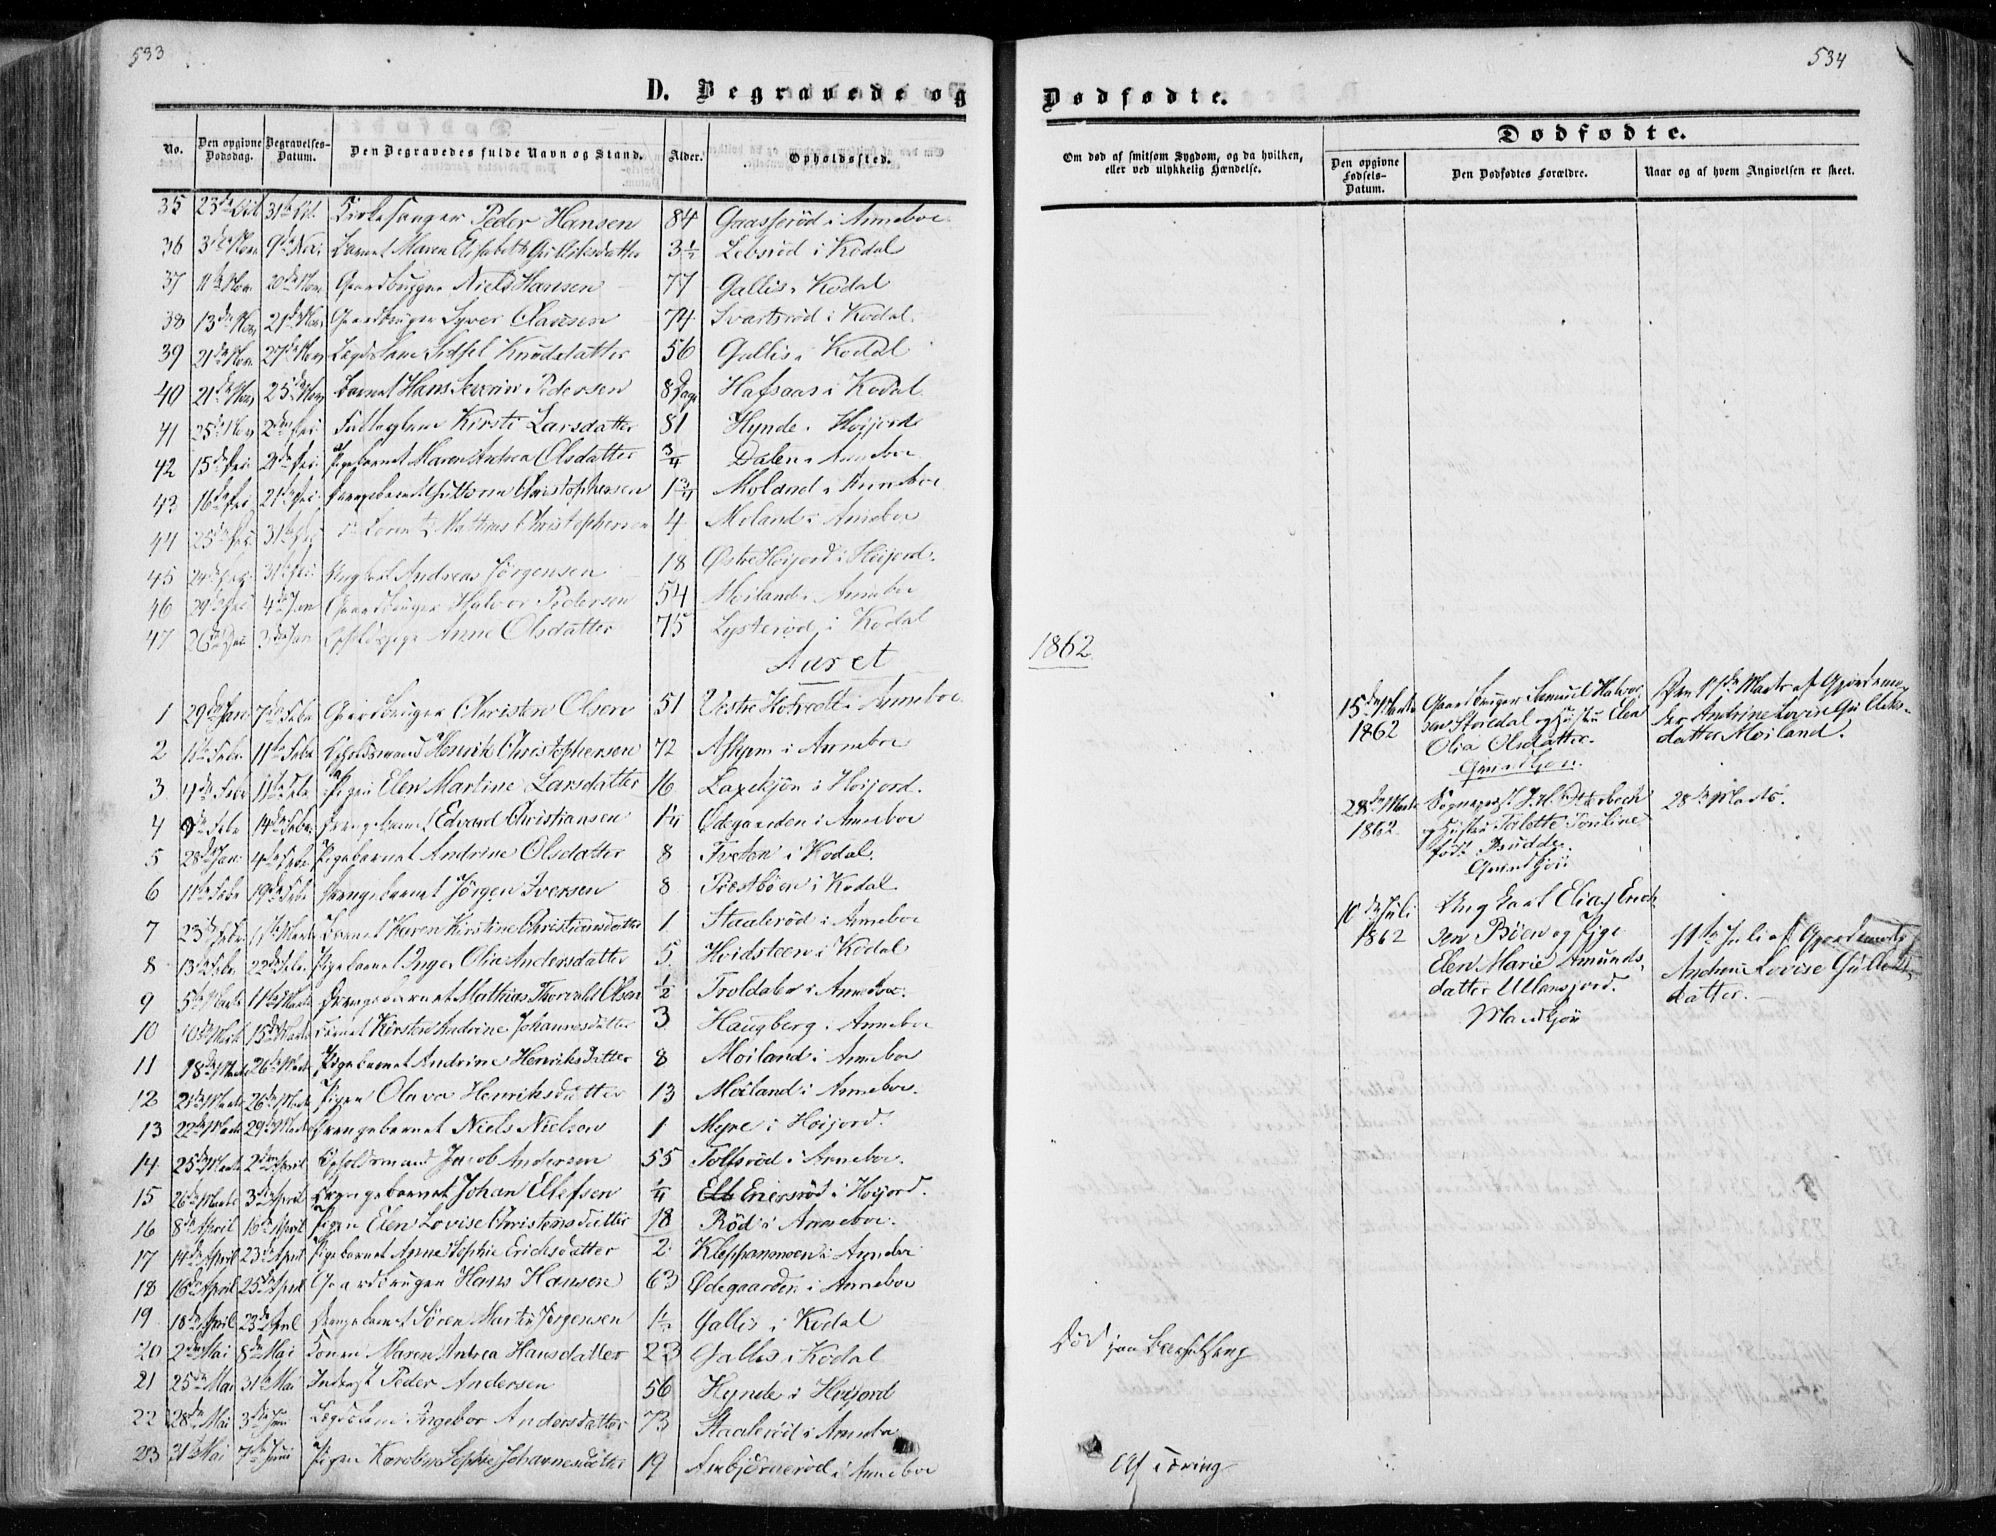 533
D. Begravede og
No. Den opgivne Dødsdag. Begravelses-Datum. Den Begravedes fulde Navn og Stand. Alder. Opholdssted.
35 23de Oct. 31te Oct. Kirkesanger Peder Hansen 84 Gaasserød i Anneboe
36 3die Nov 9de Nov. Barnet Maren Elisabeth Gulliksdatter 3½ Lebsrød i Kodal
37 11te Nov 20de Nov. Gaardbruger Niels Hansen 77 Gallis i Kodal
38 13de Nov 21de Nov Gaardbruger Syver Olausen 74 Svartsrød i Kodal.
39 21de Nov 27de Nov Lægdslem Sidsel Knudsdatter 56 Gallis i Kodal
40 21de Nov 25de Nov Barnet Hans Severin Pedersen 8 Dage Hafsaas i Kodal
41 25de Nov 2den Dec. Fattiglem Kirsti Larsdatter 81 Hynde i Høijord
42 15de Dec. 21de Dec. Pigebarnet Maren Andrea Olsdatter ¾ Dalen i Anneboe
43 16de Dec 21de Dec. Drengebarnet Christophersen 1¾ Moland i Anneboe
44 25de Dec. 31te Dec. Lorentz Mathias Christophersen 4 Moland i Anneboe
45 24de Dec. 31te Dec. Ungkarl Andreas Jørgensen 18 Østre Høijord i Høijord.
46 29de Dec 4de Jan Gaardbruger Halvor Pedersen 54 Moiland i Anneboe
47 26de Dec 3die Jan Anne Olsdatter 75 Lysterød i Kodal
Aaret
1 29de Jan 7de Febr Gaardbruger Christen Olsen 51 Vestre Hotvedt i Anneboe
2 11te Febr Opholdsmand Henrik Christophersen 72 Askjem i Anneboe
3 4de Febr 11te Febr Pigen Elen Martine Larsdatter 16 Laxekjøn i Høijord.
4 de Febr 14de Febr. Drengebarnet Edvard Christiansen 1¼ Ødegaarden i Anneboe
5 28de Jan. 4de Febr. Pigebarnet Andrine Olsdatter 8 Tveten i Kodal.
6 11te Febr 19de Febr Drengebarnet Jørgen Iversen 8 Præstbøen i Kodal
7 23de Febr. Marts Barnet Karen Kirstine Christiansdatter 1 Staalerød i Anneboe
8 13de Febr. 22de Febr. Pigebarnet Inger Olia Andersdatter 5 Hvidsteen i Kodal
9 5te Marts 11te Marts Drengebarnet Mathias Thorvald Olsen ½ Troldaber i Anneboe.
10 10de Marts 15de Marts Barnet Kirsten Andrine Johannesdatter 3 Haugberg i Anneboe
11 18de Marts 26de Marts Pigebarnet Andrine Henriksdatter 8 Moiland i Anneboe
12 21de Marts 26de Marts Pigen Olava Henriksdatter 13 Moiland i Anneboe.
13 22de Marts 29de Marts Drengebarnet Niels Nielsen 1 Myre i Høijord.
14 25de Marts 2den April Opholdsmand Jacob Andersen 55 Tolfsrød i Anneboe.
15 26de Marts 3die April Drengebarnet Johan Ellefsen ¼ Enersrød i Høijord.
16 8de April 16de April Pigen Elen Lovise Christensdatter 18 Rød i Anneboe.
17 14de April 23de April Pigebarnet Anne Sophie Erichsdatter 2. Kleppanmoen i Anneboe
18 16de April 25de April Gaardbruger Hans Hansen 63 Ødegaarden i Anneboe
19 18de April 23de April Drengebarnet Søren Martin Jørgensen 1½ Gallis i Kodal
20 2den Mai 8de Mai Konen Maren Andrea Hansdatter 23 Gallis i Kodal
21 25de Mai 31te Mai Inderst Peder Andersen 56 Hynde i Høijord
22 28de Mai 3die Juni Lægdslem Ingebor Andersdatter 73 Staalerød i Anneboe
23 31te Mai 7de Juni Pigen Karoline Sophie Johannesdatter 19 Anbjørnerød i Anneboe
534
Dødfødte.
Om død af smitsom Sygdom, og da hvilken, eller ved ulykkelig Hændelse.
Dødfødte.
Den opgivne Fødsels-Datum. Den Dødfødtes Forældre. Naar og af hvem Angivelsen er skeet.
1862
15de Marts 1862 Gaardbruger Samuel Halvorsen Storedal og Hustru Elen Olia Olsdatter. Qvindkjøn. Den 17de Marts af Gjordemoder Andrine Lovise Gulliksdatter Moiland.
28de Marts 1862 Sognepræst J. H. og Hustru Tolette Pouline født Budde. Qvindkjøn 28de Marts.
10de Juli 1862 Ungkarl Elias Erichsen Bøen og Pige Elen Marie Amundsdatter Ullensjord. Mandkjøn 11te Juli af Gjordemoder Andrine Lovise Gulliksdatter.
Død paa Barselseng
Af Tæring